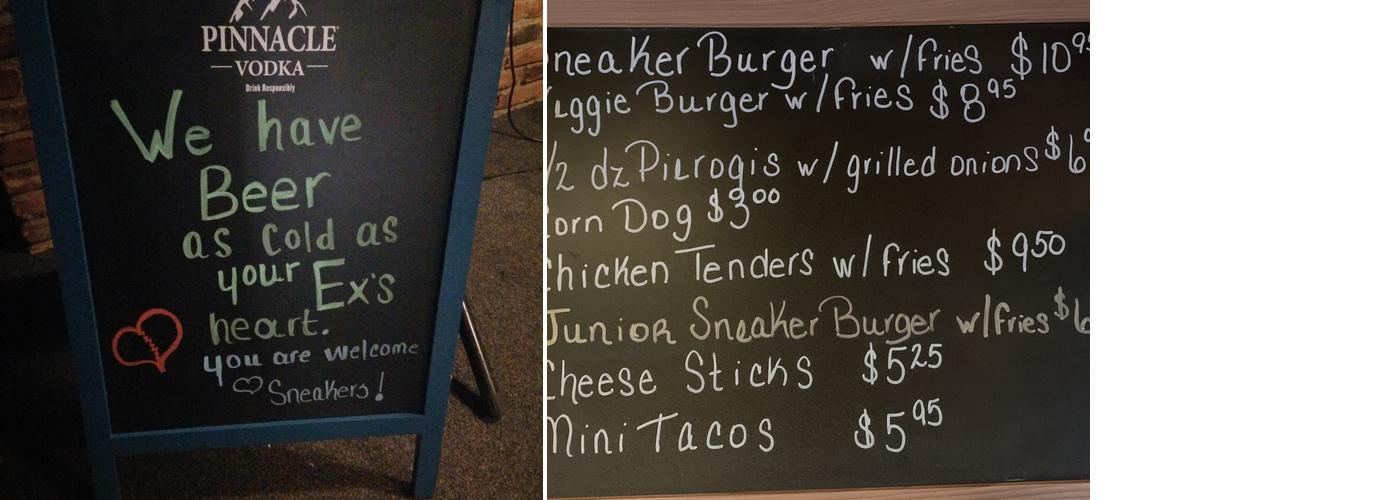 PINNACLE
VODKA
Drink Responsibly
We have
Beer
as cold as
your Ex's
heart.
you are welcome
Sneakers!
neaker Burger w/fries $10
ggie Burger w/fries $8 95
/2 dz Pierogis w/ grilled onions $6
orn Dog $3 00
hicken Tenders w/fries $9 50
Junior Sneaker Burger w/fries $6
Cheese Sticks $5 25
Mini Tacos $5 95